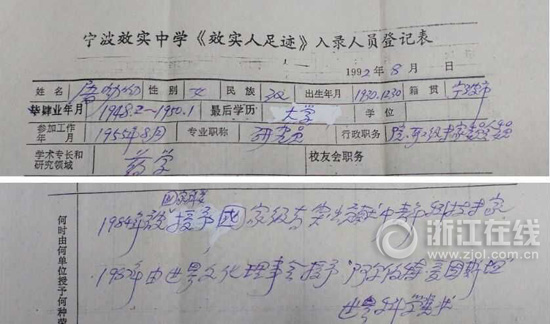 宁波效实中学《效实人足迹》入录人员登记表
1992年8月 日
姓名 屠呦呦 性别 女 民族 汉 出生年月 1930.12.30 籍贯 宁波市
毕肄业年月 1948.2~1950.1 最后学历 大学 学位
参加工作年月 1955年8月 专业职称 研究员 行政职务
学术专长和研究领域 药学 校友会职务
何时由何单位授予何种荣
1984年被授予国家级有突出贡献中青年科技专家
1987年由世界文化理事会授予"阿尔伯特·爱因斯坦
世界科学奖状"
浙江在线
www.zjol.com.cn